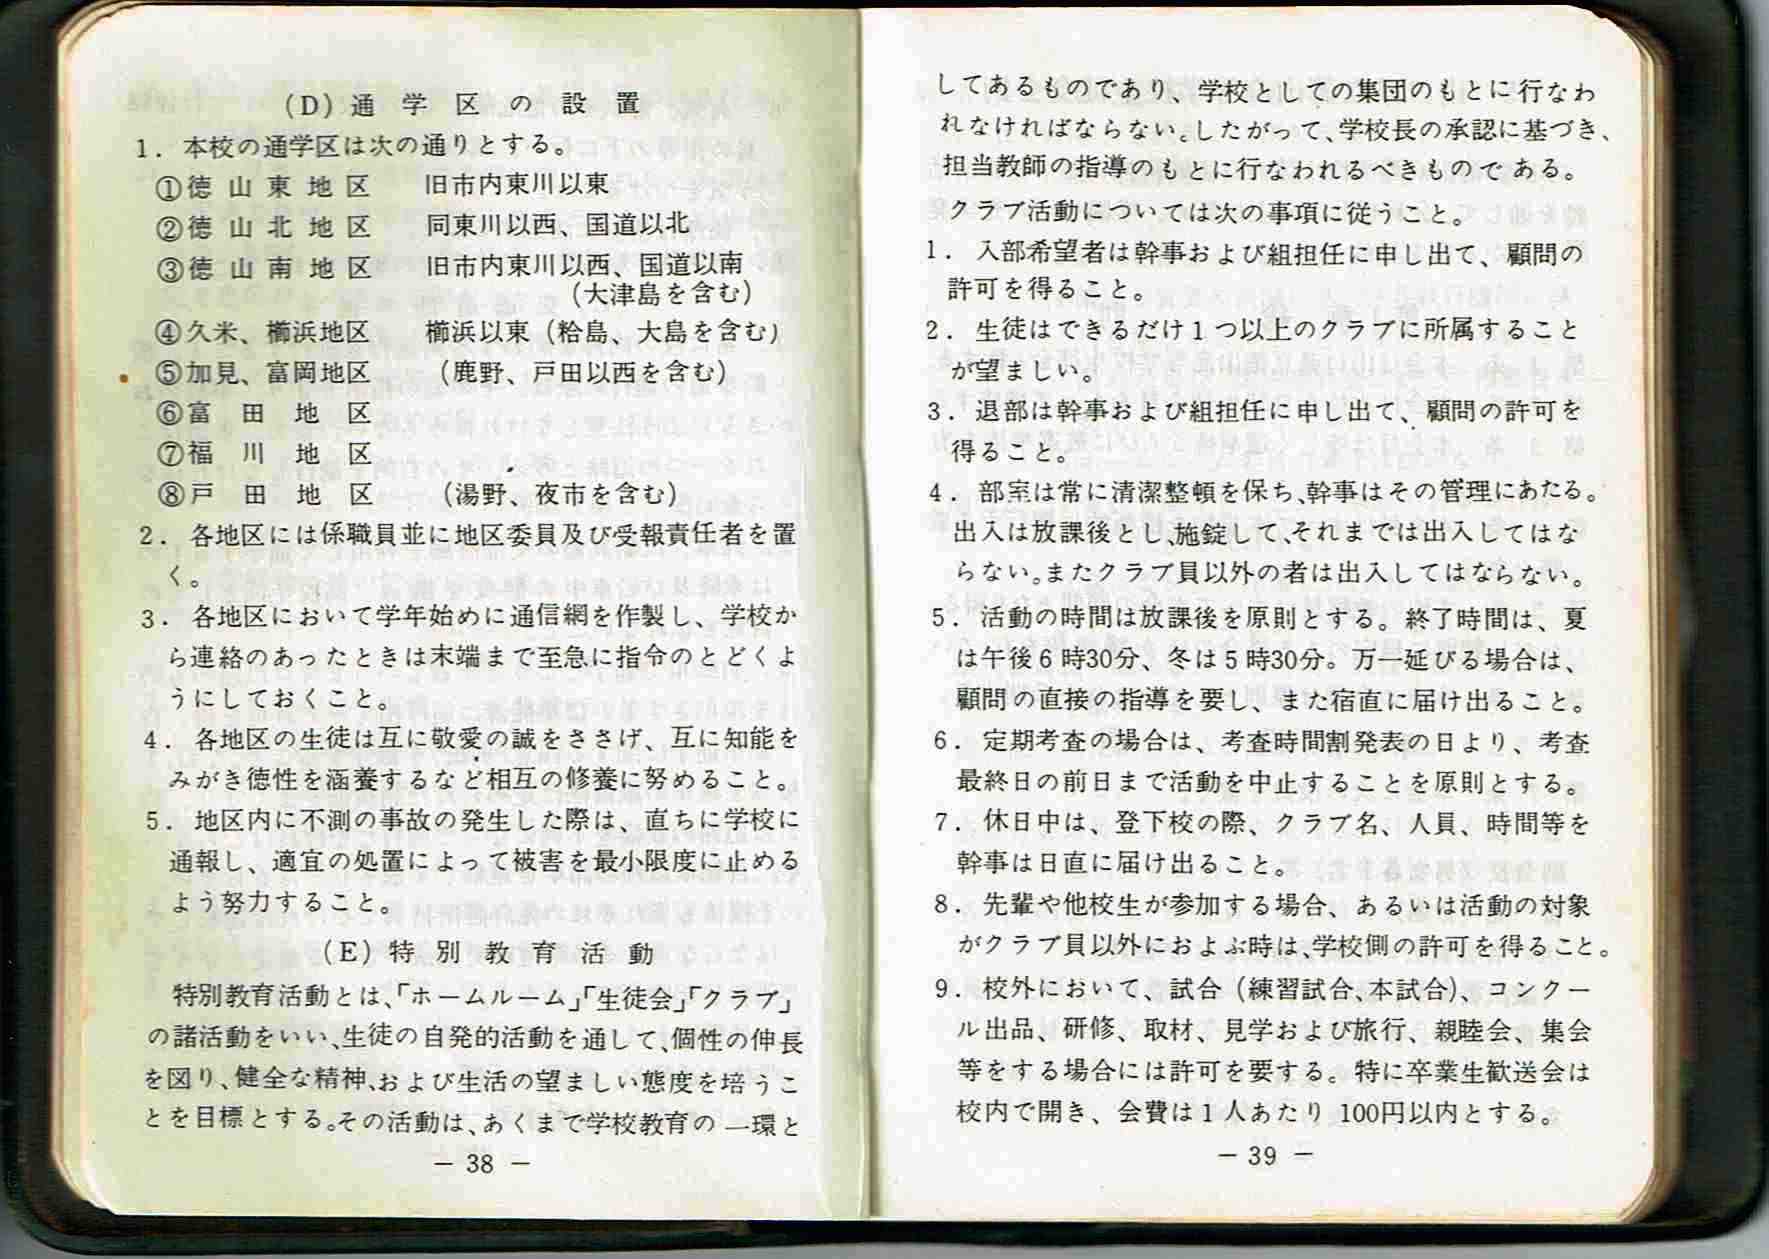 (D)通学区の設置
1．本校の通学区は次の通りとする。
①徳山東地区　旧市内東川以東
②徳山北地区　同東川以西、国道以北
③徳山南地区　旧市内東川以西、国道以南
(大津島を含む)
④久米、櫛浜地区　櫛浜以東(粭島、大島を含む)
⑤加見、富岡地区　(鹿野、戸田以西を含む)
⑥富田地区
⑦福川地区
⑧戸田地区　(湯野、夜市を含む)
2．各地区には係職員並に地区委員及び受報責任者を置
く。
3．各地区において学年始めに通信網を作製し、学校か
ら連絡のあったときは末端まで至急に指令のとどくよ
うにしておくこと。
4．各地区の生徒は互に敬愛の誠をささげ、互に知能を
みがき徳性を涵養するなど相互の修養に努めること。
5．地区内に不測の事故の発生した際は、直ちに学校に
通報し、適宜の処置によって被害を最小限度に止める
よう努力すること。
(E)特別教育活動
特別教育活動とは、「ホームルーム」「生徒会」「クラブ」
の諸活動をいい、生徒の自発的活動を通して、個性の伸長
を図り、健全な精神、および生活の望ましい態度を培うこ
とを目標とする。その活動は、あくまで学校教育の一環と
― 38 ―
してあるものであり、学校としての集団のもとに行なわ
れなければならない。したがって、学校長の承認に基づき、
担当教師の指導のもとに行なわれるべきものである。
クラブ活動については次の事項に従うこと。
1．入部希望者は幹事および組担任に申し出て、顧問の
許可を得ること。
2．生徒はできるだけ1つ以上のクラブに所属すること
が望ましい。
3．退部は幹事および組担任に申し出て、顧問の許可を
得ること。
4．部室は常に清潔整頓を保ち、幹事はその管理にあたる。
出入は放課後とし、施錠して、それまでは出入してはな
らない。またクラブ員以外の者は出入してはならない。
5．活動の時間は放課後を原則とする。終了時間は、夏
は午後6時30分、冬は5時30分。万一延びる場合は、
顧問の直接の指導を要し、また宿直に届け出ること。
6．定期考査の場合は、考査時間割発表の日より、考査
最終日の前日まで活動を中止することを原則とする。
7．休日中は、登下校の際、クラブ名、人員、時間等を
幹事は日直に届け出ること。
8．先輩や他校生が参加する場合、あるいは活動の対象
がクラブ員以外におよぶ時は、学校側の許可を得ること。
9．校外において、試合(練習試合、本試合)、コンクー
ル出品、研修、取材、見学および旅行、親睦会、集会
等をする場合には許可を要する。特に卒業生歓送会は
校内で開き、会費は1人あたり100円以内とする。
― 39 ―